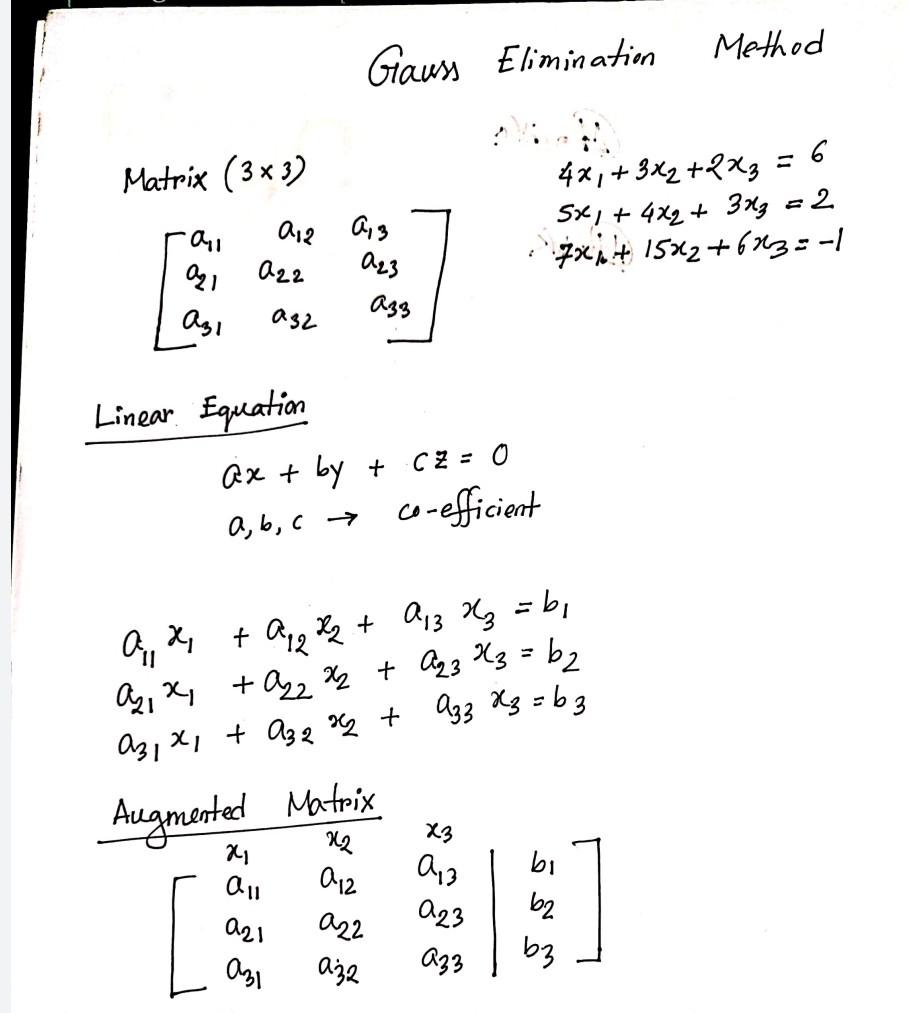 Gauss Elimination Method
Matrix (3 x 3)
a11 a12 a13
a21 a22 a23
a31 a32 a33
4x1 + 3x2 + 2x3 = 6
5x1 + 4x2 + 3x3 = 2
7x1 + 15x2 + 6x3 = -1
Linear Equation
ax + by + cz = 0
a, b, c → co-efficient
a11 x1 + a12 x2 + a13 x3 = b1
a21 x1 + a22 x2 + a23 x3 = b2
a31 x1 + a32 x2 + a33 x3 = b3
Augmented Matrix
x1 x2 x3
a11 a12 a13 | b1
a21 a22 a23 | b2
a31 a32 a33 | b3